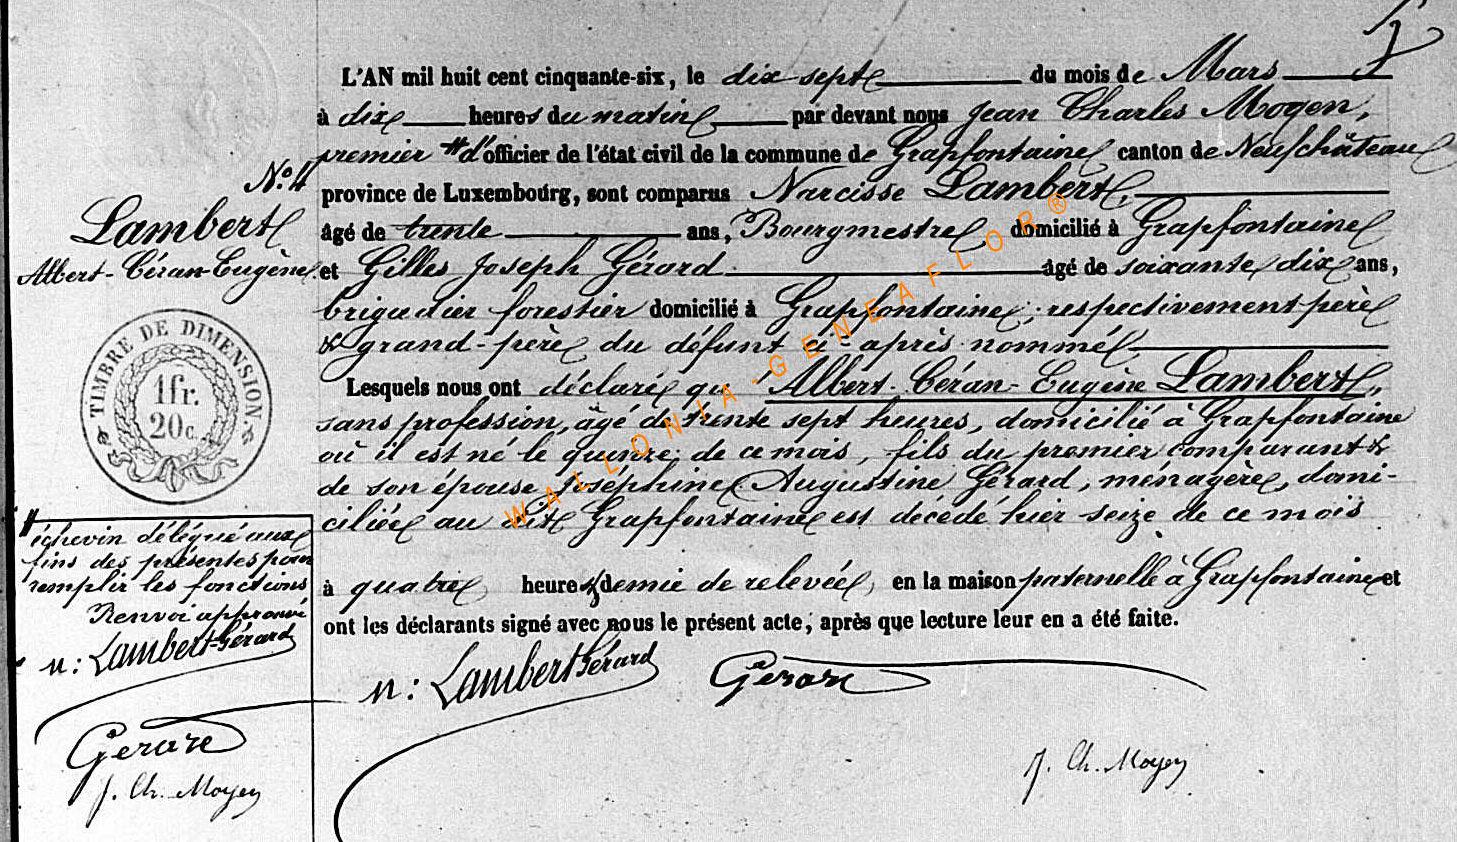 L'AN mil huit cent cinquante-six, le dix sept du mois de Mars
à dix heures du matin par devant nous Jean Charles Moyen,
premier # d'officier de l'état civil de la commune de Grapfontaine canton de Neufchâteau
province de Luxembourg, sont comparus Narcisse Lambert,
âgé de trente ans, Bourgmestre, domicilié à Grapfontaine
et Gilles Joseph Gérard âgé de soixante dix ans,
brigadier forestier domicilié à Grapfontaine; respectivement père
& grand-père du défunt ci-après nommé,
Lesquels nous ont déclaré qu' Albert-Céran-Eugène Lambert,
sans profession, âgé de trente sept heures, domicilié à Grapfontaine
où il est né le quinze de ce mois, fils du premier comparant &
de son épouse Joséphine Augustine Gérard, ménagère, domi-
ciliée au dit Grapfontaine est décédé hier seize de ce mois
à quatre heures & demie de relevée, en la maison paternelle à Grapfontaine et
ont les déclarants signé avec nous le présent acte, après que lecture leur en a été faite.
n: Lambert Gérard Gérard
J. Ch. Moyen
No. 4
Lambert
Albert-Céran-Eugène
TIMBRE DE DIMENSION.
1 fr.
20 c.
# échevin délégué aux
fins des présentes pour
remplir les fonctions
Renvoi approuvé
n: Lambert-Gérard
Gérard
J. Ch. Moyen
WALLONIA-GENEAFLOR®